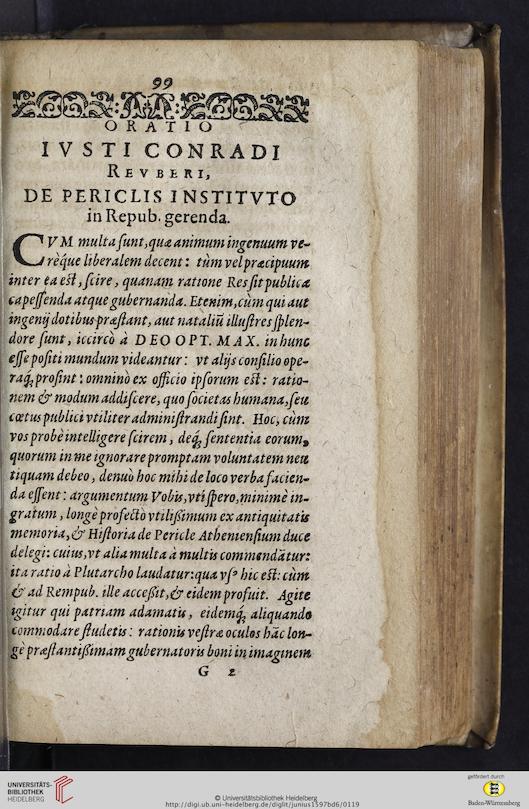 99
ORATIO
IVSTI CONRADI
REVBERI,
DE PERICLIS INSTITVTO
in Repub. gerenda.
CVM multa ſunt, quæ animum ingenuum ve-
rèque liberalem decent: tùm vel præcipuum
inter ea eſt, ſcire, quanam ratione Res ſit publica
capeſſenda atque gubernanda. Etenim, cùm qui aut
ingenij dotibus præſtant, aut nataliũ illuſtres ſplen-
dore ſunt, iccircò à DEO OPT. MAX. in hunc
eſſe poſiti mundum videantur: vt alijs conſilio ope-
raq́; proſint: omninò ex officio ipſorum eſt: ratio-
nem & modum addiſcere, quo ſocietas humana, ſeu
cœtus publici vtiliter adminiſtrandi ſint. Hoc, cùm
vos probè intelligere ſcirem, deq́; ſententia eorum,
quorum in me ignorare promptam voluntatem neu
tiquam debeo, denuò hoc mihi de loco verba facien-
da eſſent: argumentum Vobis, vti ſpero, minimè in-
gratum, longè profectò vtilißimum ex antiquitatis
memoria, & Hiſtoria de Pericle Athenienſium duce
delegi: cuius, vt alia multa à multis commendātur:
ita ratio à Plutarcho laudatur: qua vſꝰ hic eſt: cùm
& ad Rempub. ille acceßit, & eidem profuit. Agite
igitur qui patriam adamatis, eidemq́; aliquando
commodare ſtudetis: rationis veſtræ oculos hāc lon-
gè præſtantißimam gubernatoris boni in imaginem
G 2
UNIVERSITÄTS-
BIBLIOTHEK
HEIDELBERG
© Universitätsbibliothek Heidelberg
http://digi.ub.uni-heidelberg.de/diglit/junius1597bd6/0119
gefördert durch
Baden-Württemberg